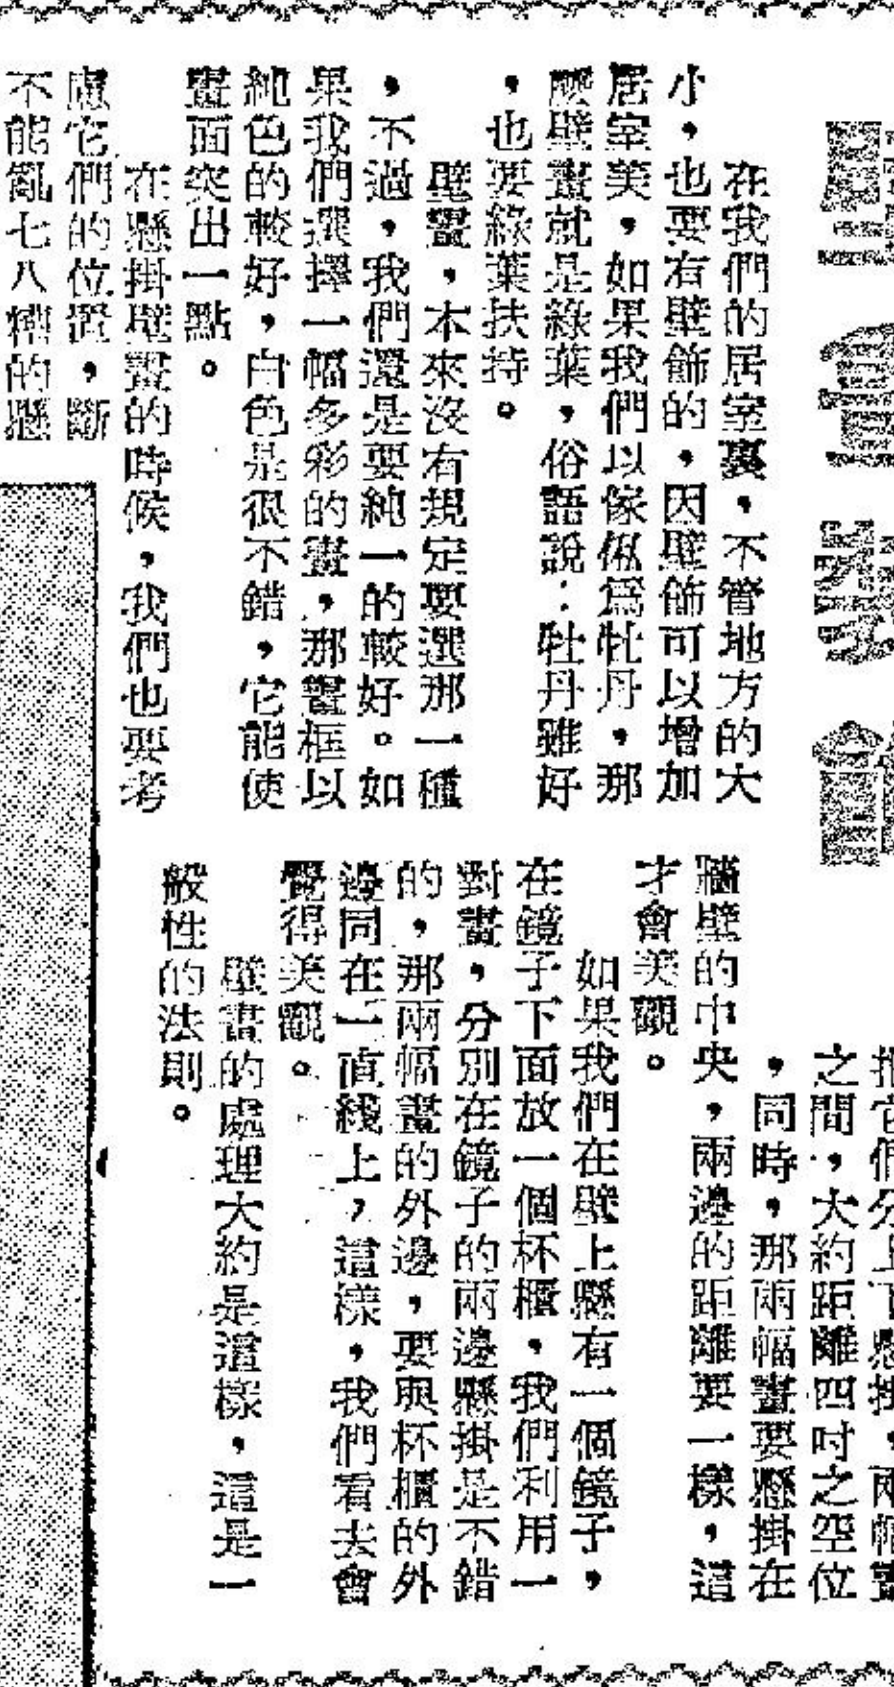 在我們的居室裏，不管地方的大
小，也要有壁飾的，因壁飾可以增加
居室美，如果我們以傢俬爲牡丹，那
麼壁畫就是綠葉，俗語說：牡丹雖好
，也要綠葉扶持。
壁畫，本來沒有規定要選那一種
，不過，我們還是要純一的較好。如
果我們選擇一幅多彩的畫，那畫框以
純色的較好，白色是很不錯，它能使
畫面突出一點。
在懸掛壁畫的時候，我們也要考
慮它們的位置，斷
不能亂七八糟的懸
把它們分上下懸掛，兩幅畫
之間，大約距離四吋之空位
，同時，那兩幅畫要懸掛在
牆壁的中央，兩邊的距離要一樣，這
才會美觀。
如果我們在壁上懸有一個鏡子，
在鏡子下面放一個杯櫃，我們利用一
對畫，分別在鏡子的兩邊懸掛是不錯
的，那兩幅畫的外邊，要與杯櫃的外
邊同在一直綫上，這樣，我們看去會
覺得美觀。
壁畫的處理大約是這樣，這是一
般性的法則。